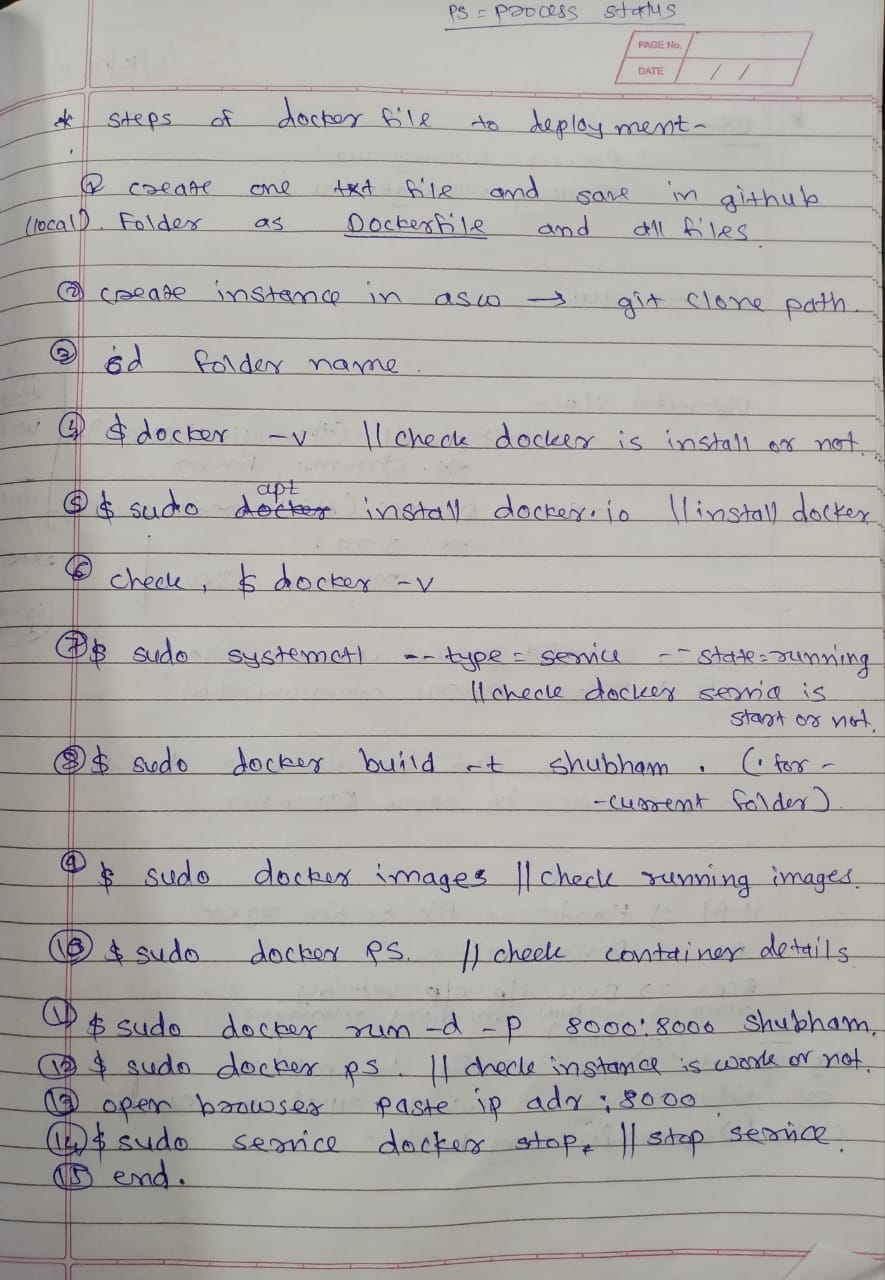 PS = process status
PAGE No.
DATE / /
* steps of docker file to deployment -
① create one txt file and save in github
(local). Folder as Dockerfile and all files.
② create instance in asw → git clone path.
③ cd folder name.
④ $ docker -v || check docker is install or not.
apt
⑤ $ sudo docker install docker.io || install docker
⑥ check, $ docker -v
⑦ $ sudo systemctl --type = service -- state=running
|| check docker servic is
start or not.
⑧ $ sudo docker build -t shubham . (. for -
-current folder).
⑨ $ sudo docker images || check running images.
⑩ $ sudo docker ps. || check container details.
⑪ $ sudo docker run -d -p 8000:8000 shubham.
⑫ $ sudo docker ps. || check instance is work or not.
⑬ open browser paste ip adr : 8000.
⑭ $ sudo service docker stop. || stop service.
⑮ end.